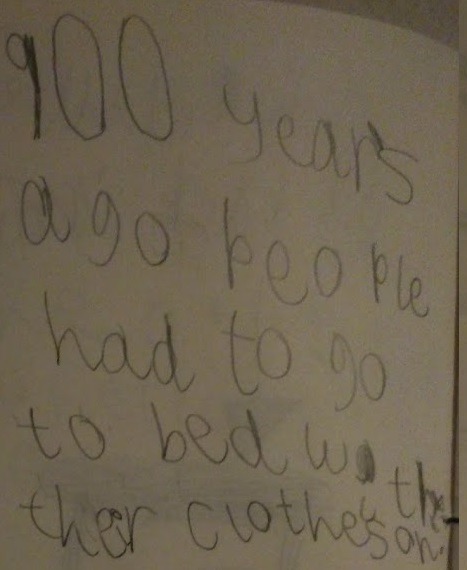 900 years
ago people
had to go
to bed with
ther clothes on.